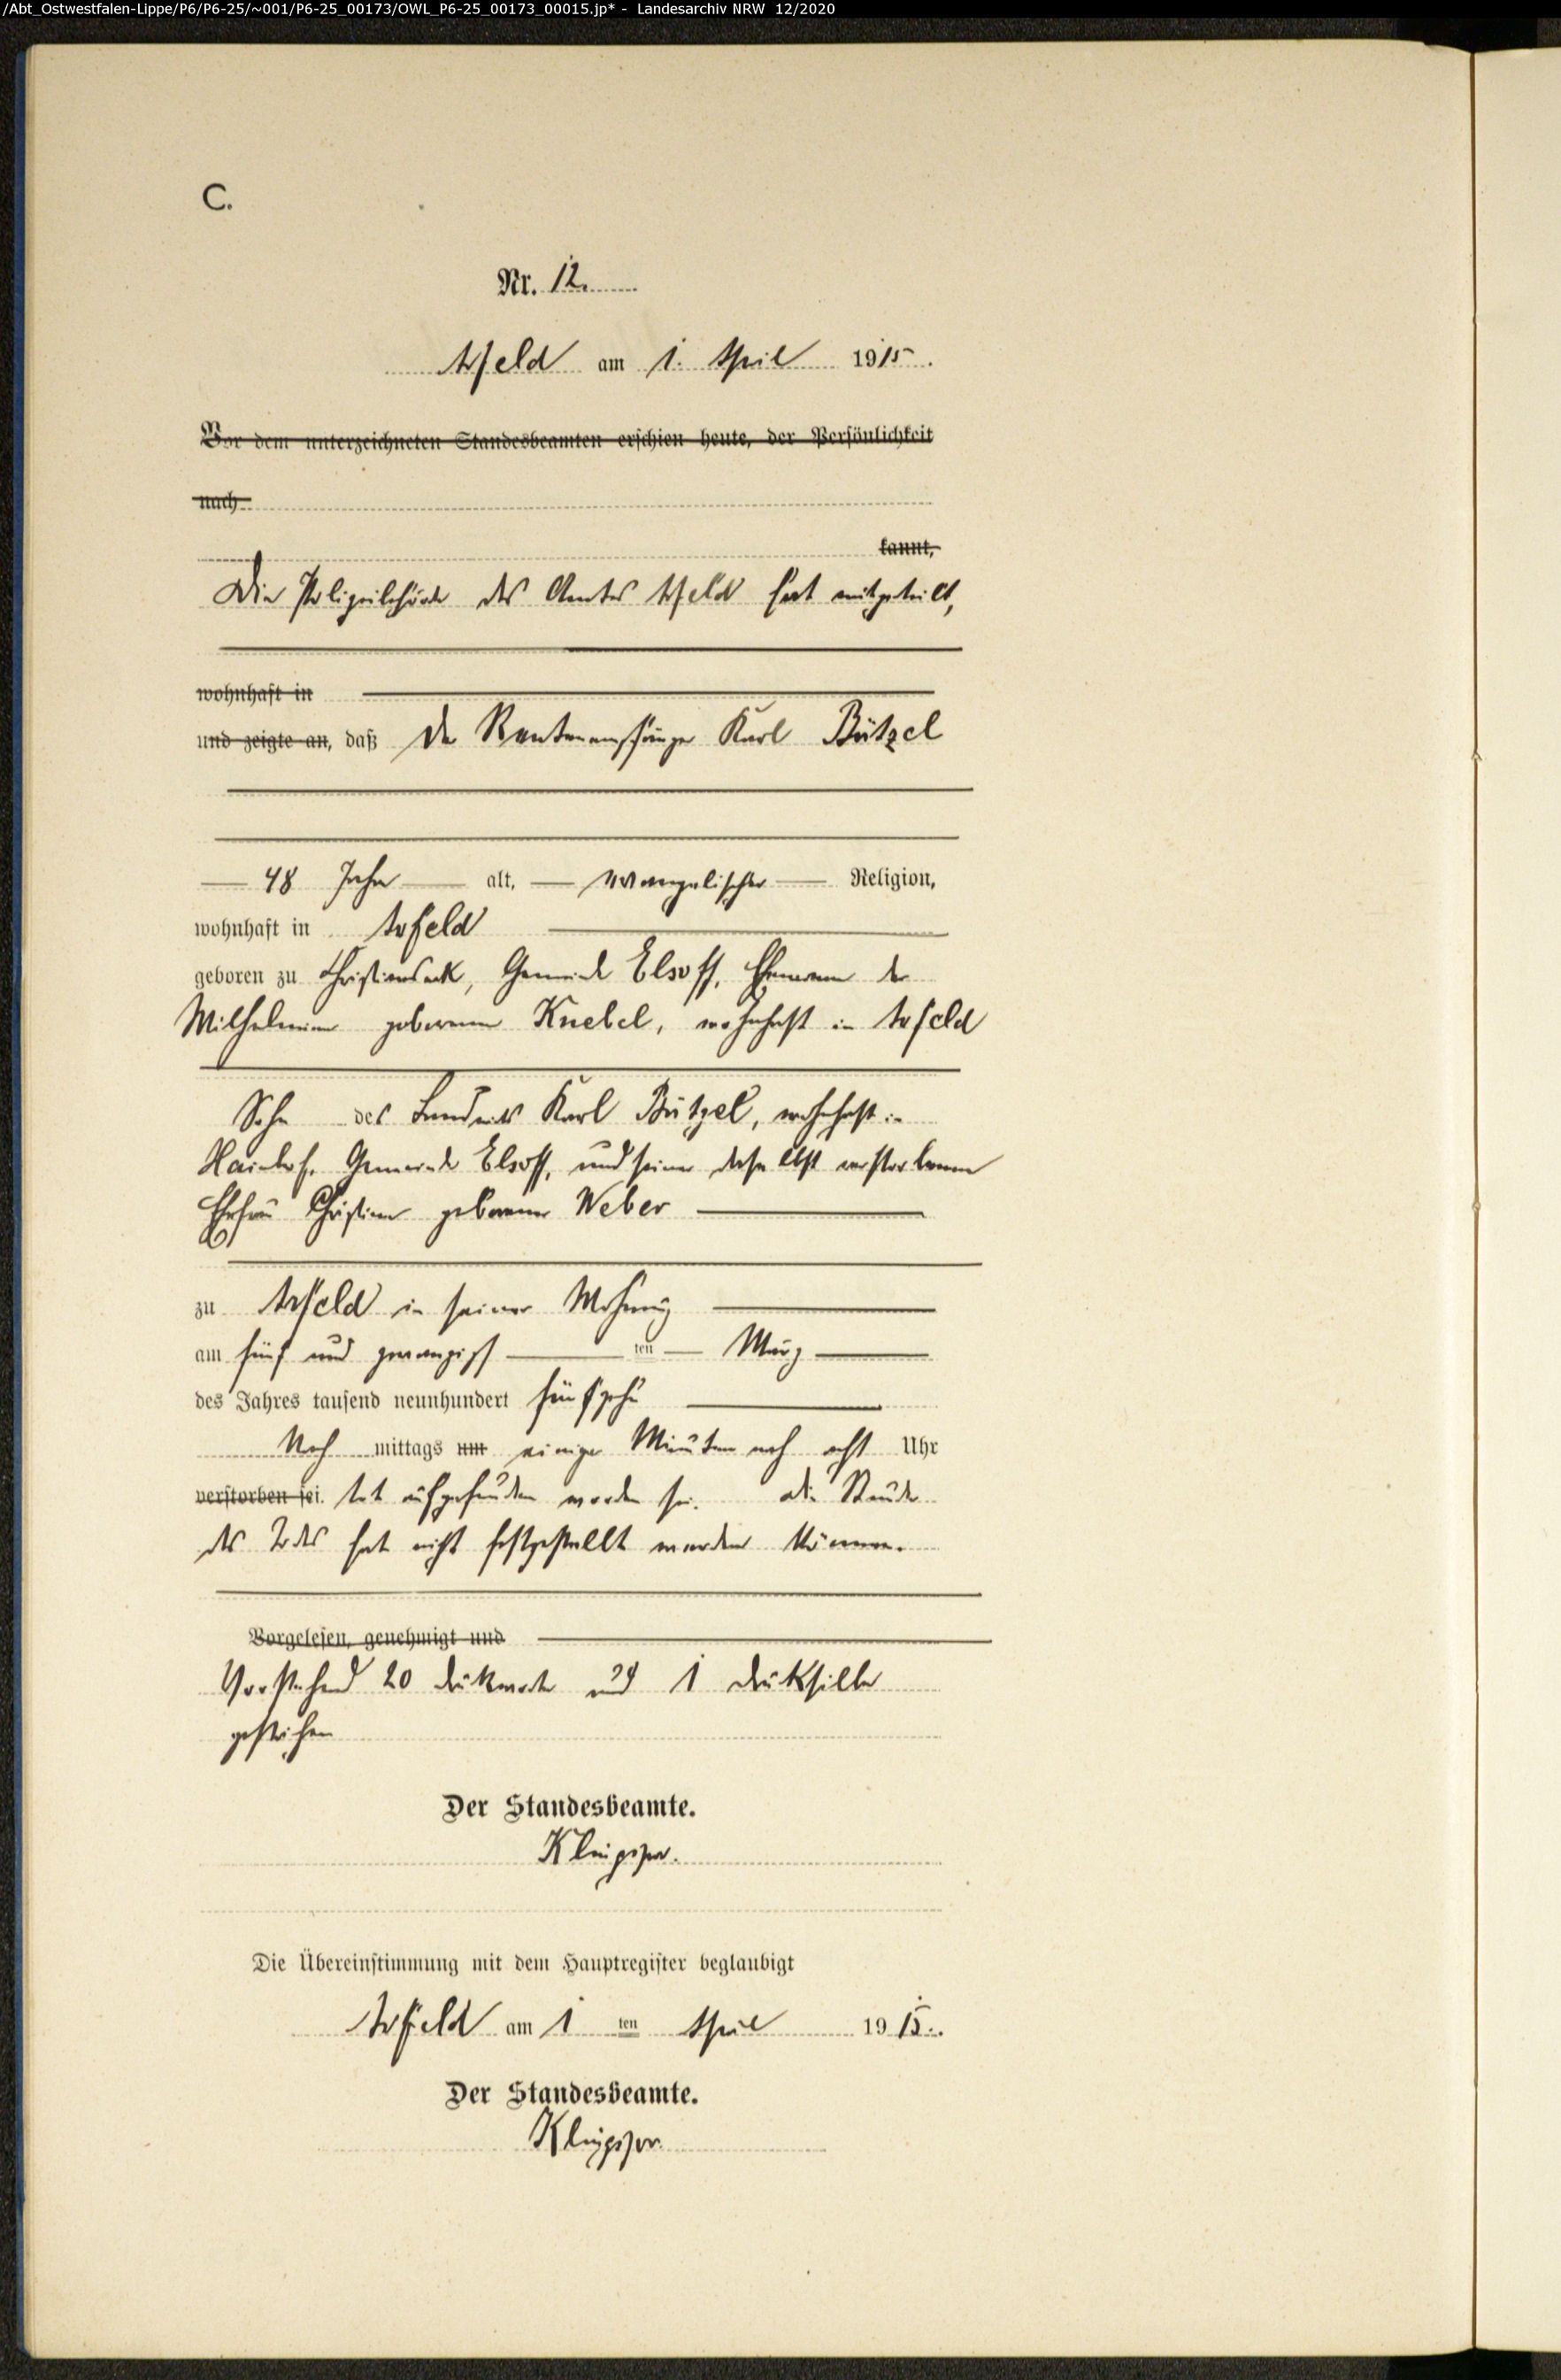 /Abt_Ostwestfalen-Lippe/P6/P6-25/~001/P6-25_00173/OWL_P6-25_00173_00015.jp* - Landesarchiv NRW 12/2020
C.
Nr. 12.
Arfeld am 1. April 1915.
Vor dem unterzeichneten Standesbeamten erschien heute, der Persönlichkeit
nach
kannt,
Die Polizeibehörde des Amtes Arfeld hat mitgeteilt,
wohnhaft in
und zeigte an, daß der Rentenempfänger Karl Bützel
48 Jahre alt, evangelischer Religion,
wohnhaft in Arfeld
geboren zu Christianseck, Gemeinde Elsoff, Ehemann der
Wilhelmine geborenen Knebel, wohnhaft in Arfeld
Sohn des Landwirts Karl Bützel, wohnhaft in
Gemeinde Elsoff, und seiner daselbst verstorbenen
Ehefrau Christine geborenen Weber
zu Arfeld in seiner Wohnung
am fünf und zwanzigsten März
des Jahres tausend neunhundert fünfzehn
Nach mittags um einige Minuten nach acht Uhr
verstorben sei. tot aufgefunden worden sei. Die Stunde
des Todes hat nicht festgestellt werden können.
Vorgelesen, genehmigt und
Vorstehend 20 Druckworte und 1 Drucksilbe
gestrichen
Der Standesbeamte.
Klingspor.
Die Übereinstimmung mit dem Hauptregister beglaubigt
Arfeld am 1 ten April 1915.
Der Standesbeamte.
Klingspor.